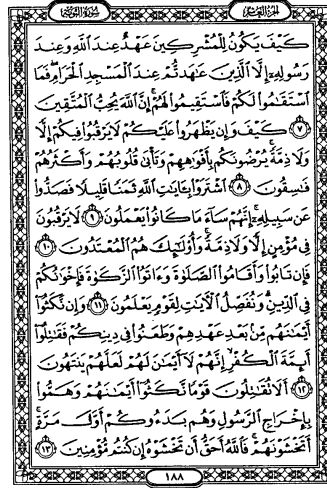 الجزء العاشر
سورة التوبة
كَيْفَ يَكُونُ لِلْمُشْرِكِينَ عَهْدٌ عِندَ اللَّهِ وَعِندَ
رَسُولِهِ إِلَّا الَّذِينَ عَاهَدتُّمْ عِندَ الْمَسْجِدِ الْحَرَامِ فَمَا
اسْتَقَامُوا لَكُمْ فَاسْتَقِيمُوا لَهُمْ إِنَّ اللَّهَ يُحِبُّ الْمُتَّقِينَ
٧ كَيْفَ وَإِن يَظْهَرُوا عَلَيْكُمْ لَا يَرْقُبُوا فِيكُمْ إِلًّا
وَلَا ذِمَّةً يُرْضُونَكُم بِأَفْوَاهِهِمْ وَتَأْبَى قُلُوبُهُمْ وَأَكْثَرُهُمْ
فَاسِقُونَ ٨ اشْتَرَوْا بِآيَاتِ اللَّهِ ثَمَنًا قَلِيلًا فَصَدُّوا
عَن سَبِيلِهِ إِنَّهُمْ سَاءَ مَا كَانُوا يَعْمَلُونَ ٩ لَا يَرْقُبُونَ
فِي مُؤْمِنٍ إِلًّا وَلَا ذِمَّةً وَأُولَئِكَ هُمُ الْمُعْتَدُونَ ١٠
فَإِن تَابُوا وَأَقَامُوا الصَّلَوٰةَ وَءَاتَوُا الزَّكَوٰةَ فَإِخْوَانُكُمْ
فِي الدِّينِ وَنُفَصِّلُ الْآيَاتِ لِقَوْمٍ يَعْلَمُونَ ١١ وَإِن نَّكَثُوا
أَيْمَانَهُم مِّن بَعْدِ عَهْدِهِمْ وَطَعَنُوا فِي دِينِكُمْ فَقَاتِلُوا
أَئِمَّةَ الْكُفْرِ إِنَّهُمْ لَا أَيْمَانَ لَهُمْ لَعَلَّهُمْ يَنتَهُونَ
١٢ أَلَا تُقَاتِلُونَ قَوْمًا نَّكَثُوا أَيْمَانَهُمْ وَهَمُّوا
بِإِخْرَاجِ الرَّسُولِ وَهُم بَدَءُوكُمْ أَوَّلَ مَرَّةٍ
أَتَخْشَوْنَهُمْ فَاللَّهُ أَحَقُّ أَن تَخْشَوْهُ إِن كُنتُم مُّؤْمِنِينَ ١٣
١٨٨